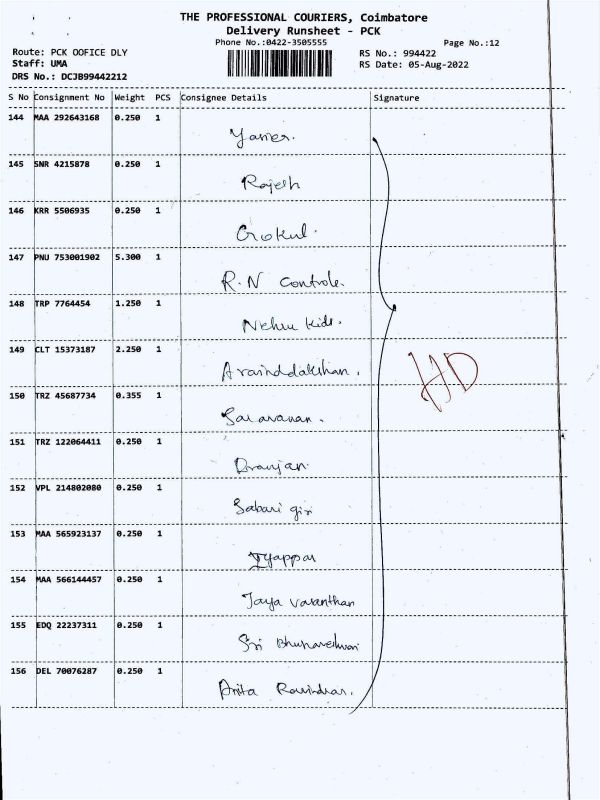 THE PROFESSIONAL COURIERS, Coimbatore
Delivery Runsheet - PCK
Phone No.:0422-3505555
Page No.:12
Route: PCK OOFICE DLY
RS No.: 994422
Staff: UMA
RS Date: 05-Aug-2022
DRS No.: DCJB99442212
S No Consignment No Weight PCS Consignee Details Signature
144 MAA 292643168 0.250 1
145 SNR 4215878 0.250 1
Rajesh
146 KRR 5506935 0.250 1
Gokul.
147 PNU 753001902 5.300 1
R.N Controls.
148 TRP 7764454 1.250 1
Nehru Kids.
149 CLT 15373187 2.250 1
HD
150 TRZ 45687734 0.355 1
Saravanan.
151 TRZ 122064411 0.250 1
152 VPL 214802080 0.250 1
Sabari giri
153 MAA 565923137 0.250 1
Iyappan
154 MAA 566144457 0.250 1
Jaya Varanthan
155 EDQ 22237311 0.250 1
Sri Bhuvaneshwari
156 DEL 70076287 0.250 1
Anita Ravindran.